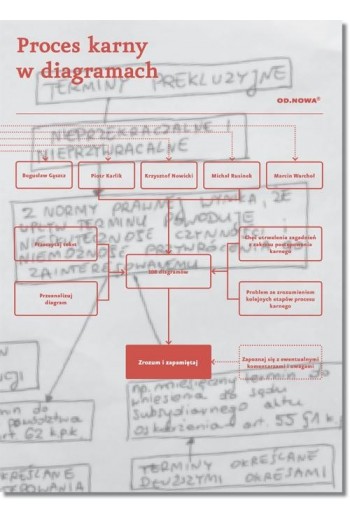 Proces karny
w diagramach
OD.NOWA®
TERMINY PREKLUZYJNE
NIEPRZEKRACZALNE I
NIEPRZYWRACALNE
Bogusław Gąszcz
Piotr Karlik
Krzysztof Nowicki
Michał Rusinek
Marcin Warchoł
Z NORMY PRAWNEJ WYNIKA, ŻE
UPŁYW TERMINU POWODUJE
CZYNNOŚCI
NIEMOŻNOŚĆ PRZYWRÓCENIA
ZAINTERESOWANEMU
Przeczytaj tekst
Chęć utrwalenia zagadnień
z zakresu postępowania
karnego
diagramów
Przeanalizuj
diagram
Problem ze zrozumieniem
kolejnych etapów procesu
karnego
Zrozum i zapamiętaj
Zapoznaj się z ewentualnymi
komentarzami i uwagami
np. miesięczny termin do
wniesienia do sądu
subsydiarnego aktu
oskarżenia art. 55 §1 k.p
min do
powództwa
art 62 k.p.k
OKREŚLANE
TERMINY OKREŚLANE
DŁUŻSZYMI OKRESAMI